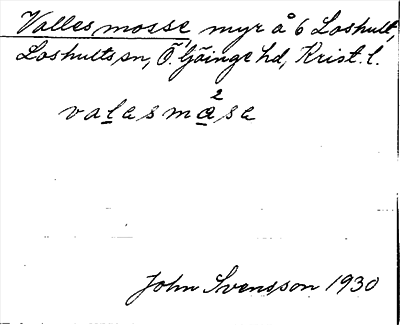 Valles mosse myr å 6 Loshult,
Loshults sn, Ö. Göinge hd, Krist. l.
valesmåse
2
John Svensson 1930